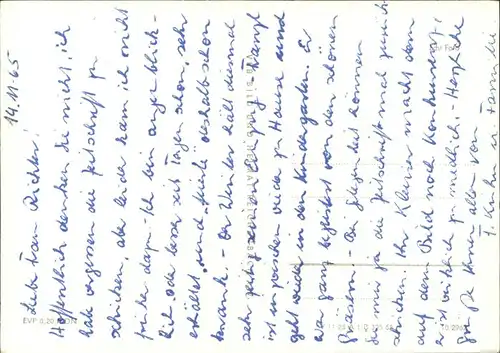 14.11.65
Liebe Frau Richter!
Hoffentlich denken Sie nicht, ich
habe vergessen die Zeitschrift zu
schicken, aber leider kam ich nicht
früher dazu. Ich bin augenblick-
lich oder besser seit Tagen schon, sehr
erkältet, und
- Der Winter hält diesmal
sehr zeitig seinen Einzug. -
ist inzwischen wieder zu Hause und
geht wieder in den Kindergarten. Er
war ganz begeistert von den schönen
- Bei Gelegenheit können
Sie mir ja die Zeitschrift mal zurück-
schicken. Ihr Kleiner macht dem
auf dem Bild noch Konkurrenz,
er ist wirklich zu niedlich! - Herzliche
Grüße Ihnen allen von
F. Kuhn u. Familie
EVP 0,20